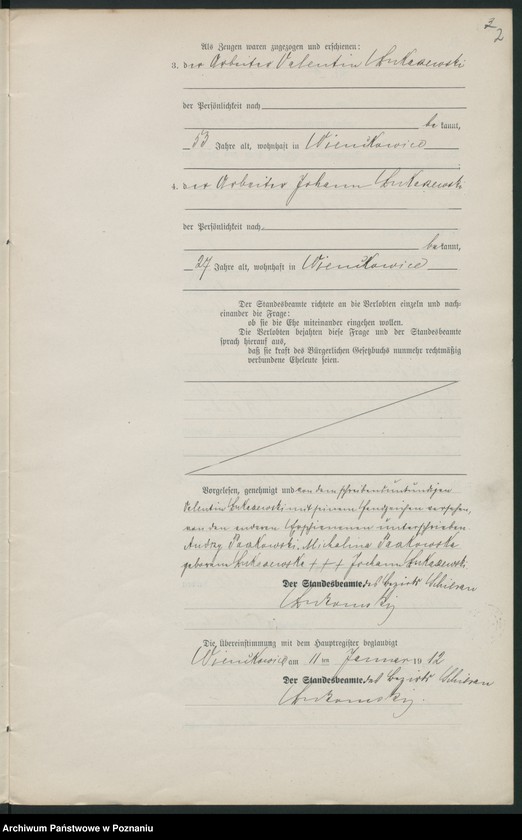 2
2
Als Zeugen waren zugezogen und erschienen:
3. der Arbeiter Valentin Lukaszewski
der Persönlichkeit nach
be kannt,
53 Jahre alt, wohnhaft in
4. der Arbeiter Johann Lukaszewski
der Persönlichkeit nach
be kannt,
27 Jahre alt, wohnhaft in
Der Standesbeamte richtete an die Verlobten einzeln und nach-
einander die Frage:
ob sie die Ehe miteinander eingehen wollen.
Die Verlobten bejahten diese Frage und der Standesbeamte
sprach hierauf aus,
daß sie kraft des Bürgerlichen Gesetzbuchs nunmehr rechtmäßig
verbundene Eheleute seien.
Vorgelesen, genehmigt und von dem schreibensunkundigen
Valentin Lukaszewski mit seinem Handzeichen versehen,
von den anderen Erschienenen unterschrieben
Michalina
geborene Lukaszewska +++ Johann Lukaszewski
Der Standesbeamte. des Bezirks
Die Übereinstimmung mit dem Hauptregister beglaubigt
am 11 ten Januar 19 12
Der Standesbeamte. des Bezirks
Archiwum Państwowe w Poznaniu